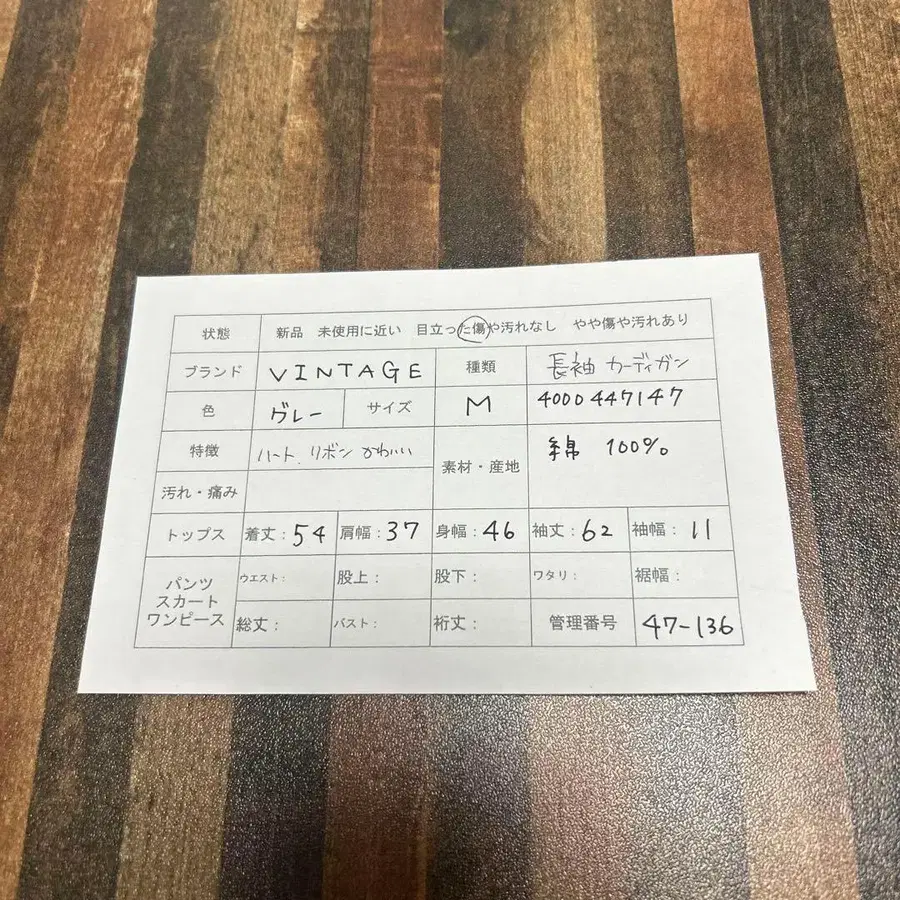 状態 新品 未使用に近い 目立った傷や汚れなし やや傷や汚れあり
ブランド VINTAGE 種類 長袖 カーディガン
色 グレー サイズ M 4000447147
特徴 ハート リボン かわいい 素材・産地 綿 100%
汚れ・痛み
トップス 着丈:54 肩幅:37 身幅:46 袖丈:62 袖幅:11
パンツ スカート ワンピース ウエスト: 股上: 股下: ワタリ: 裾幅:
総丈: バスト: 裄丈: 管理番号 47-136